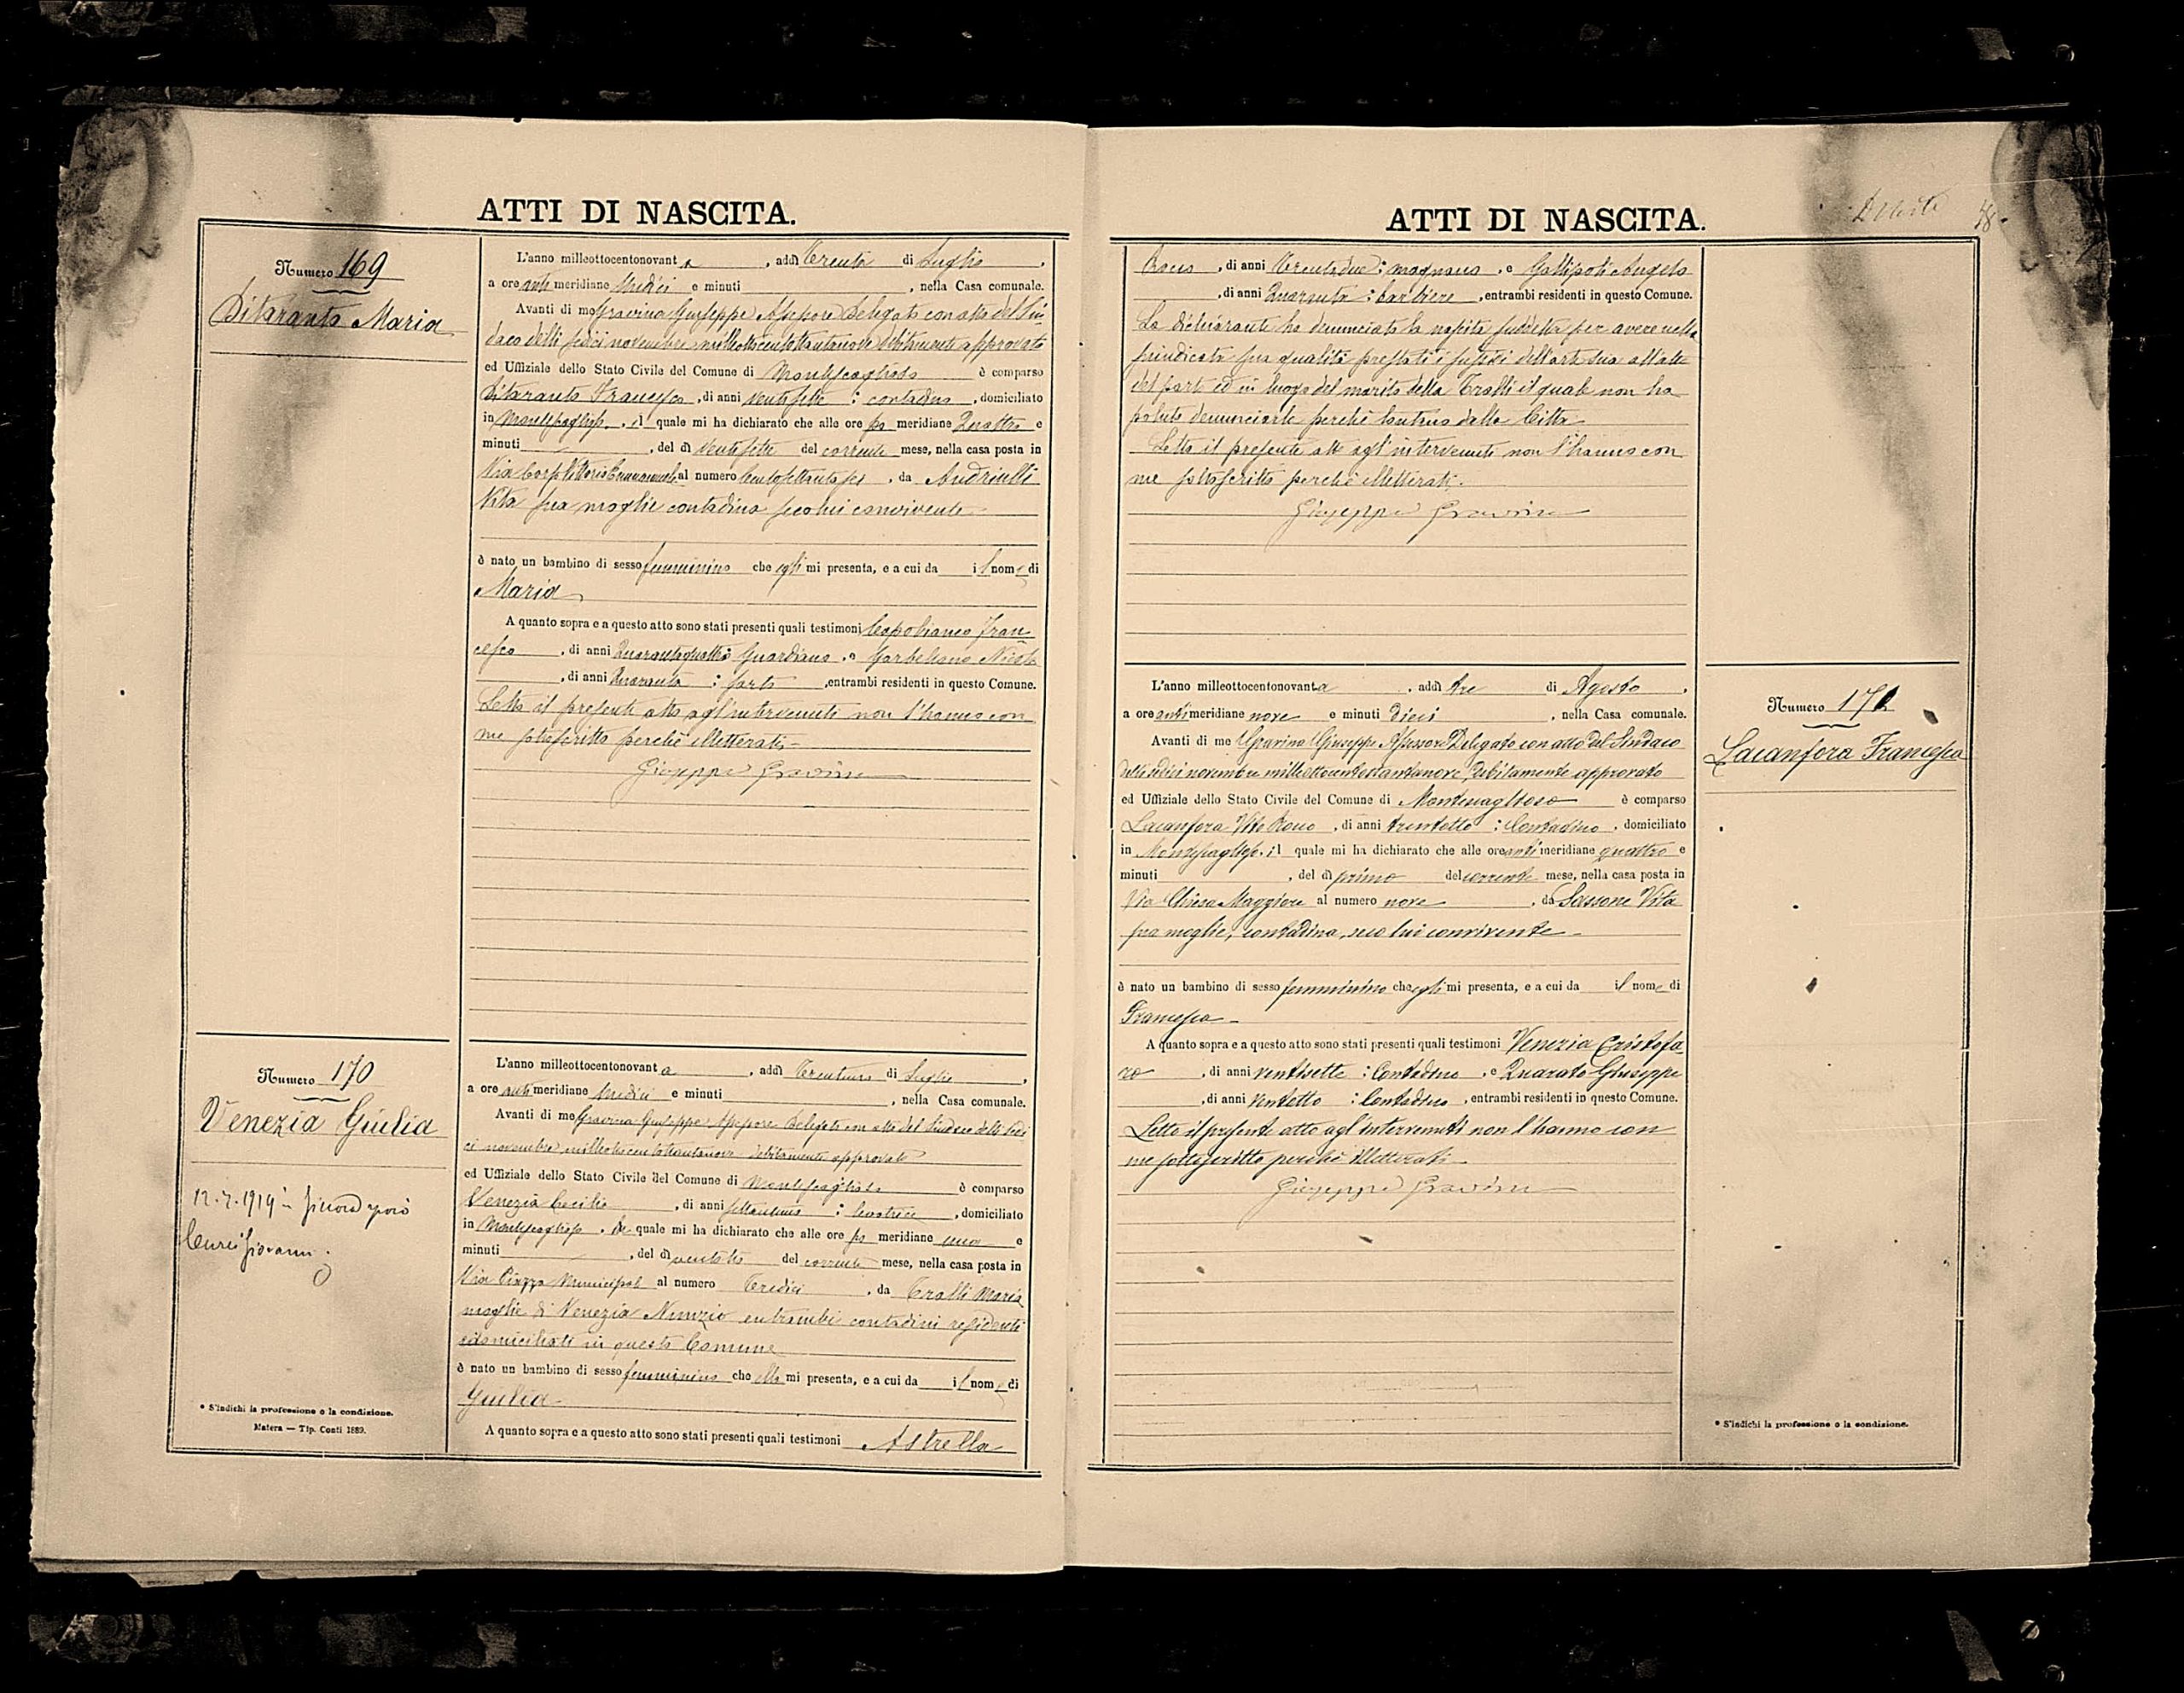 ATTI DI NASCITA.
Numero 169
Ditaranto Maria
L'anno milleottocentonovanta, addì Trenta di Luglio,
a ore anti meridiane undici e minuti, nella Casa comunale.
Avanti di me Gravina Giuseppe Assessore Delegato con atto del Sin-
daco delli sedici novembre milleottocentottantanove debitamente approvato
ed Uffiziale dello Stato Civile del Comune di Montescaglioso è comparso
Ditaranto Francesco, di anni ventisette : contadino, domiciliato
in Montescaglioso, il quale mi ha dichiarato che alle ore po meridiane Quattro e
minuti, del dì ventisette del corrente mese, nella casa posta in
Via Corso Vittorio Emanuele al numero centosettantasei, da Andriulli
Vita sua moglie contadina seco lui convivente
è nato un bambino di sesso femminino che egli mi presenta, e a cui da il nome di
Maria
A quanto sopra e a questo atto sono stati presenti quali testimoni Capobianco Fran-
cesco, di anni Quarantaquattro Guardiano, e Garbellano Nicola
, di anni Quaranta : sarto, entrambi residenti in questo Comune.
Letto il presente atto agl'intervenuti non l'hanno con
me sottoscritto perché illetterati
Giuseppe Gravina
Numero 170
Venezia Giulia
12.7.1919
Giovanni
L'anno milleottocentonovanta, addì Trentuno di Luglio,
a ore anti meridiane undici e minuti, nella Casa comunale.
Avanti di me Gravina Giuseppe Assessore Delegato con atto del Sindaco delli sedi
ci novembre milleottocentottantanove debitamente approvato
ed Uffiziale dello Stato Civile del Comune di Montescaglioso è comparso
Venezia Cecilia, di anni settantuno : levatrice, domiciliato
in Montescaglioso, la quale mi ha dichiarato che alle ore po meridiane una e
minuti, del dì ventotto del corrente mese, nella casa posta in
Via Piazza Municipal al numero Tredici, da Tralli Maria
moglie di Venezia Nunzio entrambi contadini residenti
e domiciliati in questo Comune
è nato un bambino di sesso femminino che ella mi presenta, e a cui da il nome di
Giulia
A quanto sopra e a questo atto sono stati presenti quali testimoni Astrella
* S'indichi la professione o la condizione.
Matera — Tip. Conti 1889.
ATTI DI NASCITA.
48
Rocco, di anni Trentadue : magnano, e Gallipoli Angelo
, di anni Quaranta : barbiere, entrambi residenti in questo Comune.
La dichiarante ha denunciato la nascita suddetta per avere nella
summenzionata sua qualità prestati i sussidi dell'arte sua all'atto
del parto ed in luogo del marito della Tralli il quale non ha
potuto denunciarla perché lontano dalla Città
Letto il presente atto agl'intervenuti non l'hanno con
me sottoscritto perché illetterati.
Giuseppe Gravina
Numero 171
Lacanfora Francesca
L'anno milleottocentonovanta, addì tre di Agosto,
a ore anti meridiane nove e minuti dieci, nella Casa comunale.
Avanti di me Gravina Giuseppe Assessore Delegato con atto del Sindaco
delli sedici novembre milleottocentottantanove, debitamente approvato
ed Uffiziale dello Stato Civile del Comune di Montescaglioso è comparso
Lacanfora Vito Rocco, di anni trentotto : Contadino, domiciliato
in Montescaglioso, il quale mi ha dichiarato che alle ore anti meridiane quattro e
minuti, del dì primo del corrente mese, nella casa posta in
Via Chiesa Maggiore al numero nove, da Sassone Vita
sua moglie, contadina, seco lui convivente
è nato un bambino di sesso femminino che egli mi presenta, e a cui da il nome di
Francesca
A quanto sopra e a questo atto sono stati presenti quali testimoni Venezia Cristofa
ro, di anni ventisette : Contadino, e Quarato Giuseppe
, di anni ventotto : Contadino, entrambi residenti in questo Comune.
Letto il presente atto agl'intervenuti non l'hanno con
me sottoscritto perché illetterati
Giuseppe Gravina
* S'indichi la professione o la condizione.